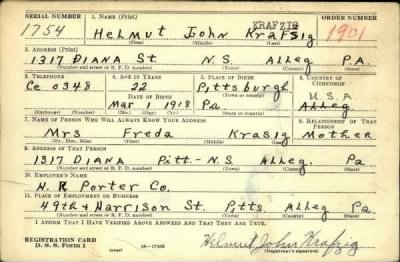 SERIAL NUMBER 1. NAME (Print) KRAFZIG ORDER NUMBER
1754 Helmut John Krafzig 1901
(First) (Middle) (Last)
2. ADDRESS (Print)
1317 DIANA St N.S. Alleg PA.
(Number and street or R. F. D. number) (Town) (County) (State)
3. TELEPHONE 4. AGE IN YEARS 5. PLACE OF BIRTH 6. COUNTRY OF CITIZENSHIP
Ce 0348 22 Pittsburgh U.S.A.
DATE OF BIRTH (Town or county)
Mar 1 1918 Pa Alleg
(Exchange) (Number) (Mo.) (Day) (Yr.) (State or country)
7. NAME OF PERSON WHO WILL ALWAYS KNOW YOUR ADDRESS 8. RELATIONSHIP OF THAT PERSON
Mrs Freda Krasig Mother
(Mr., Mrs., Miss) (First) (Middle) (Last)
9. ADDRESS OF THAT PERSON
1317 DIANA Pitt.-N.S Alleg. Pa
(Number and street or R. F. D. number) (Town) (County) (State)
10. EMPLOYER'S NAME
H. R. Porter Co.
11. PLACE OF EMPLOYMENT OR BUSINESS
49th & Harrison St. Pitts Alleg Pa.
(Number and street or R. F. D. number) (Town) (County) (State)
I AFFIRM THAT I HAVE VERIFIED ABOVE ANSWERS AND THAT THEY ARE TRUE.
REGISTRATION CARD
D. S. S. Form 1 (over) Helmut John Krafzig
(Registrant's signature)